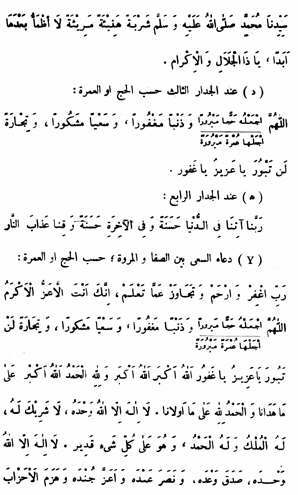 سَيِّدِنَا مُحَمَّدٍ صَلَّى اللهُ عَلَيْهِ وَ سَلَّمَ شَرْبَةً هَنِيْئَةً مَرِيْئَةً لَا أَظْمَأُ بَعْدَهَا
اَبَدًا ، يَا ذَا الْجَلَالِ وَ الْاِكْرَامِ .
( د ) عند الجدار الثالث حسب الحج او العمرة :
اَللّٰهُمَّ اجْعَلْهُ حَجًّا مَبْرُوْرًا وَ ذَنْبًا مَغْفُوْرًا ، وَ سَعْيًا مَشْكُوْرًا ، وَ تِجَارَةً
اجْعَلْهَا عُمْرَةً مَبْرُوْرَةً
لَنْ تَبُوْرَ يَا عَزِيْزُ يَا غَفُوْرُ .
( ه ) عند الجدار الرابع :
رَبَّنَا آتِنَا فِى الدُّنْيَا حَسَنَةً وَ فِى الْآخِرَةِ حَسَنَةً وَ قِنَا عَذَابَ النَّارِ
( ٧ ) دعاء السعى بين الصفا و المروة ؛ حسب الحج او العمرة :
رَبِّ اغْفِرْ وَ ارْحَمْ وَ تَجَاوَزْ عَمَّا تَعْلَمْ ، اِنَّكَ اَنْتَ الْاَعَزُّ الْاَكْرَمُ
اَللّٰهُمَّ اجْعَلْهُ حَجًّا مَبْرُوْرًا وَ ذَنْبًا مَغْفُوْرًا ، وَ سَعْيًا مَشْكُوْرًا ، وَ تِجَارَةً لَنْ
اجْعَلْهَا عُمْرَةً مَبْرُوْرَةً
تَبُوْرَ يَا عَزِيْزُ يَا غَفُوْرُ اَللهُ اَكْبَرُ اَللهُ اَكْبَرُ وَ لِلّٰهِ الْحَمْدُ اَللهُ اَكْبَرُ عَلٰى
مَا هَدَانَا وَ الْحَمْدُ لِلّٰهِ عَلٰى مَا اَوْلَانَا . لَا اِلٰهَ اِلَّا اللهُ وَحْدَهُ ، لَا شَرِيْكَ لَهُ ،
لَهُ الْمُلْكُ وَ لَهُ الْحَمْدُ ؛ وَ هُوَ عَلٰى كُلِّ شَىْءٍ قَدِيْرٍ . لَا اِلٰهَ اِلَّا اللهُ
وَحْدَهُ ، صَدَقَ وَعْدَهُ . وَ نَصَرَ عَبْدَهُ وَ اَعَزَّ جُنْدَهُ وَ هَزَمَ الْاَحْزَابَ